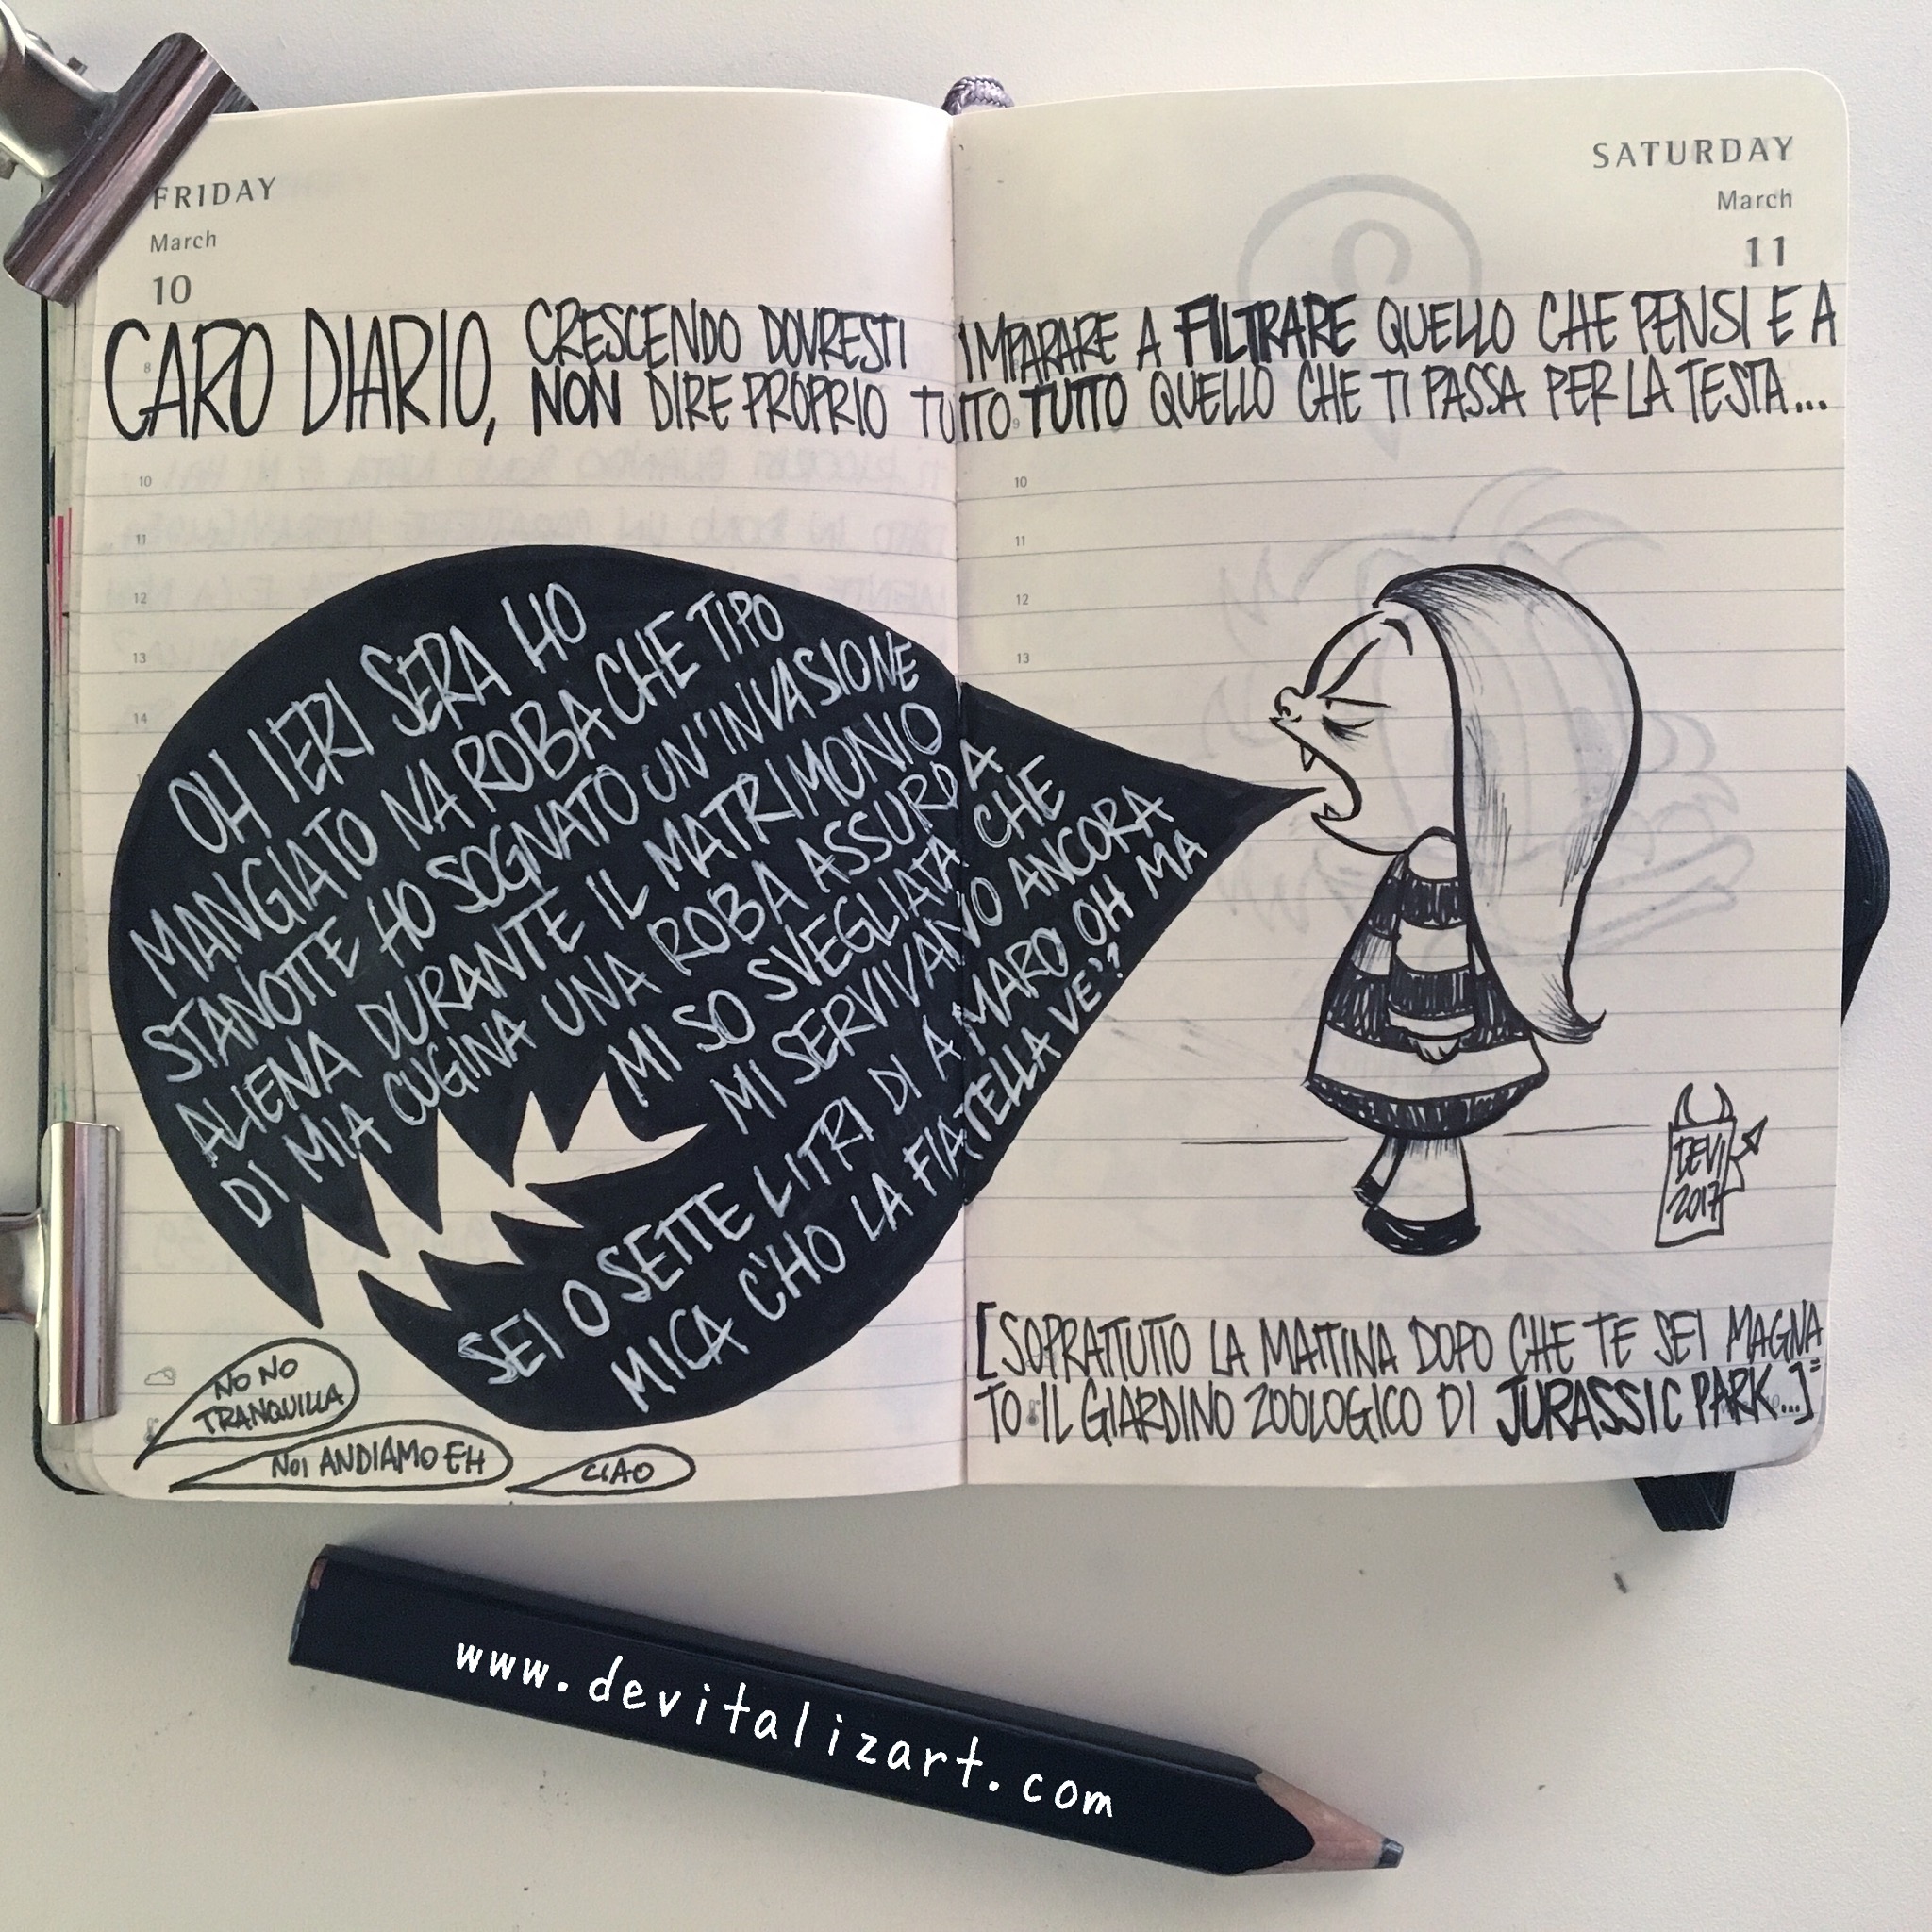 FRIDAY
March
10
SATURDAY
March
11
CARO DIARIO, CRESCENDO DOVRESTI IMPARARE A FILTRARE QUELLO CHE PENSI E A
NON DIRE PROPRIO TUTTO TUTTO QUELLO CHE TI PASSA PER LA TESTA...
8
9
10
11
12
13
14
10
11
12
13
OH IERI SERA HO
MANGIATO NA ROBA CHE TIPO
STANOTTE HO SOGNATO UN'INVASIONE
ALIENA DURANTE IL MATRIMONIO
DI MIA CUGINA UNA ROBA ASSURDA
MI SO SVEGLIATA CHE
MI SERVIVANO ANCORA
SEI O SETTE LITRI DI AMARO OH MA
MICA C'HO LA FIATELLA VE'?
NO NO
TRANQUILLA
NOI ANDIAMO EH
CIAO
DEVI
2017
[SOPRATTUTTO LA MATTINA DOPO CHE TE SEI MAGNA
TO IL GIARDINO ZOOLOGICO DI JURASSIC PARK...]
www.devitalizart.com